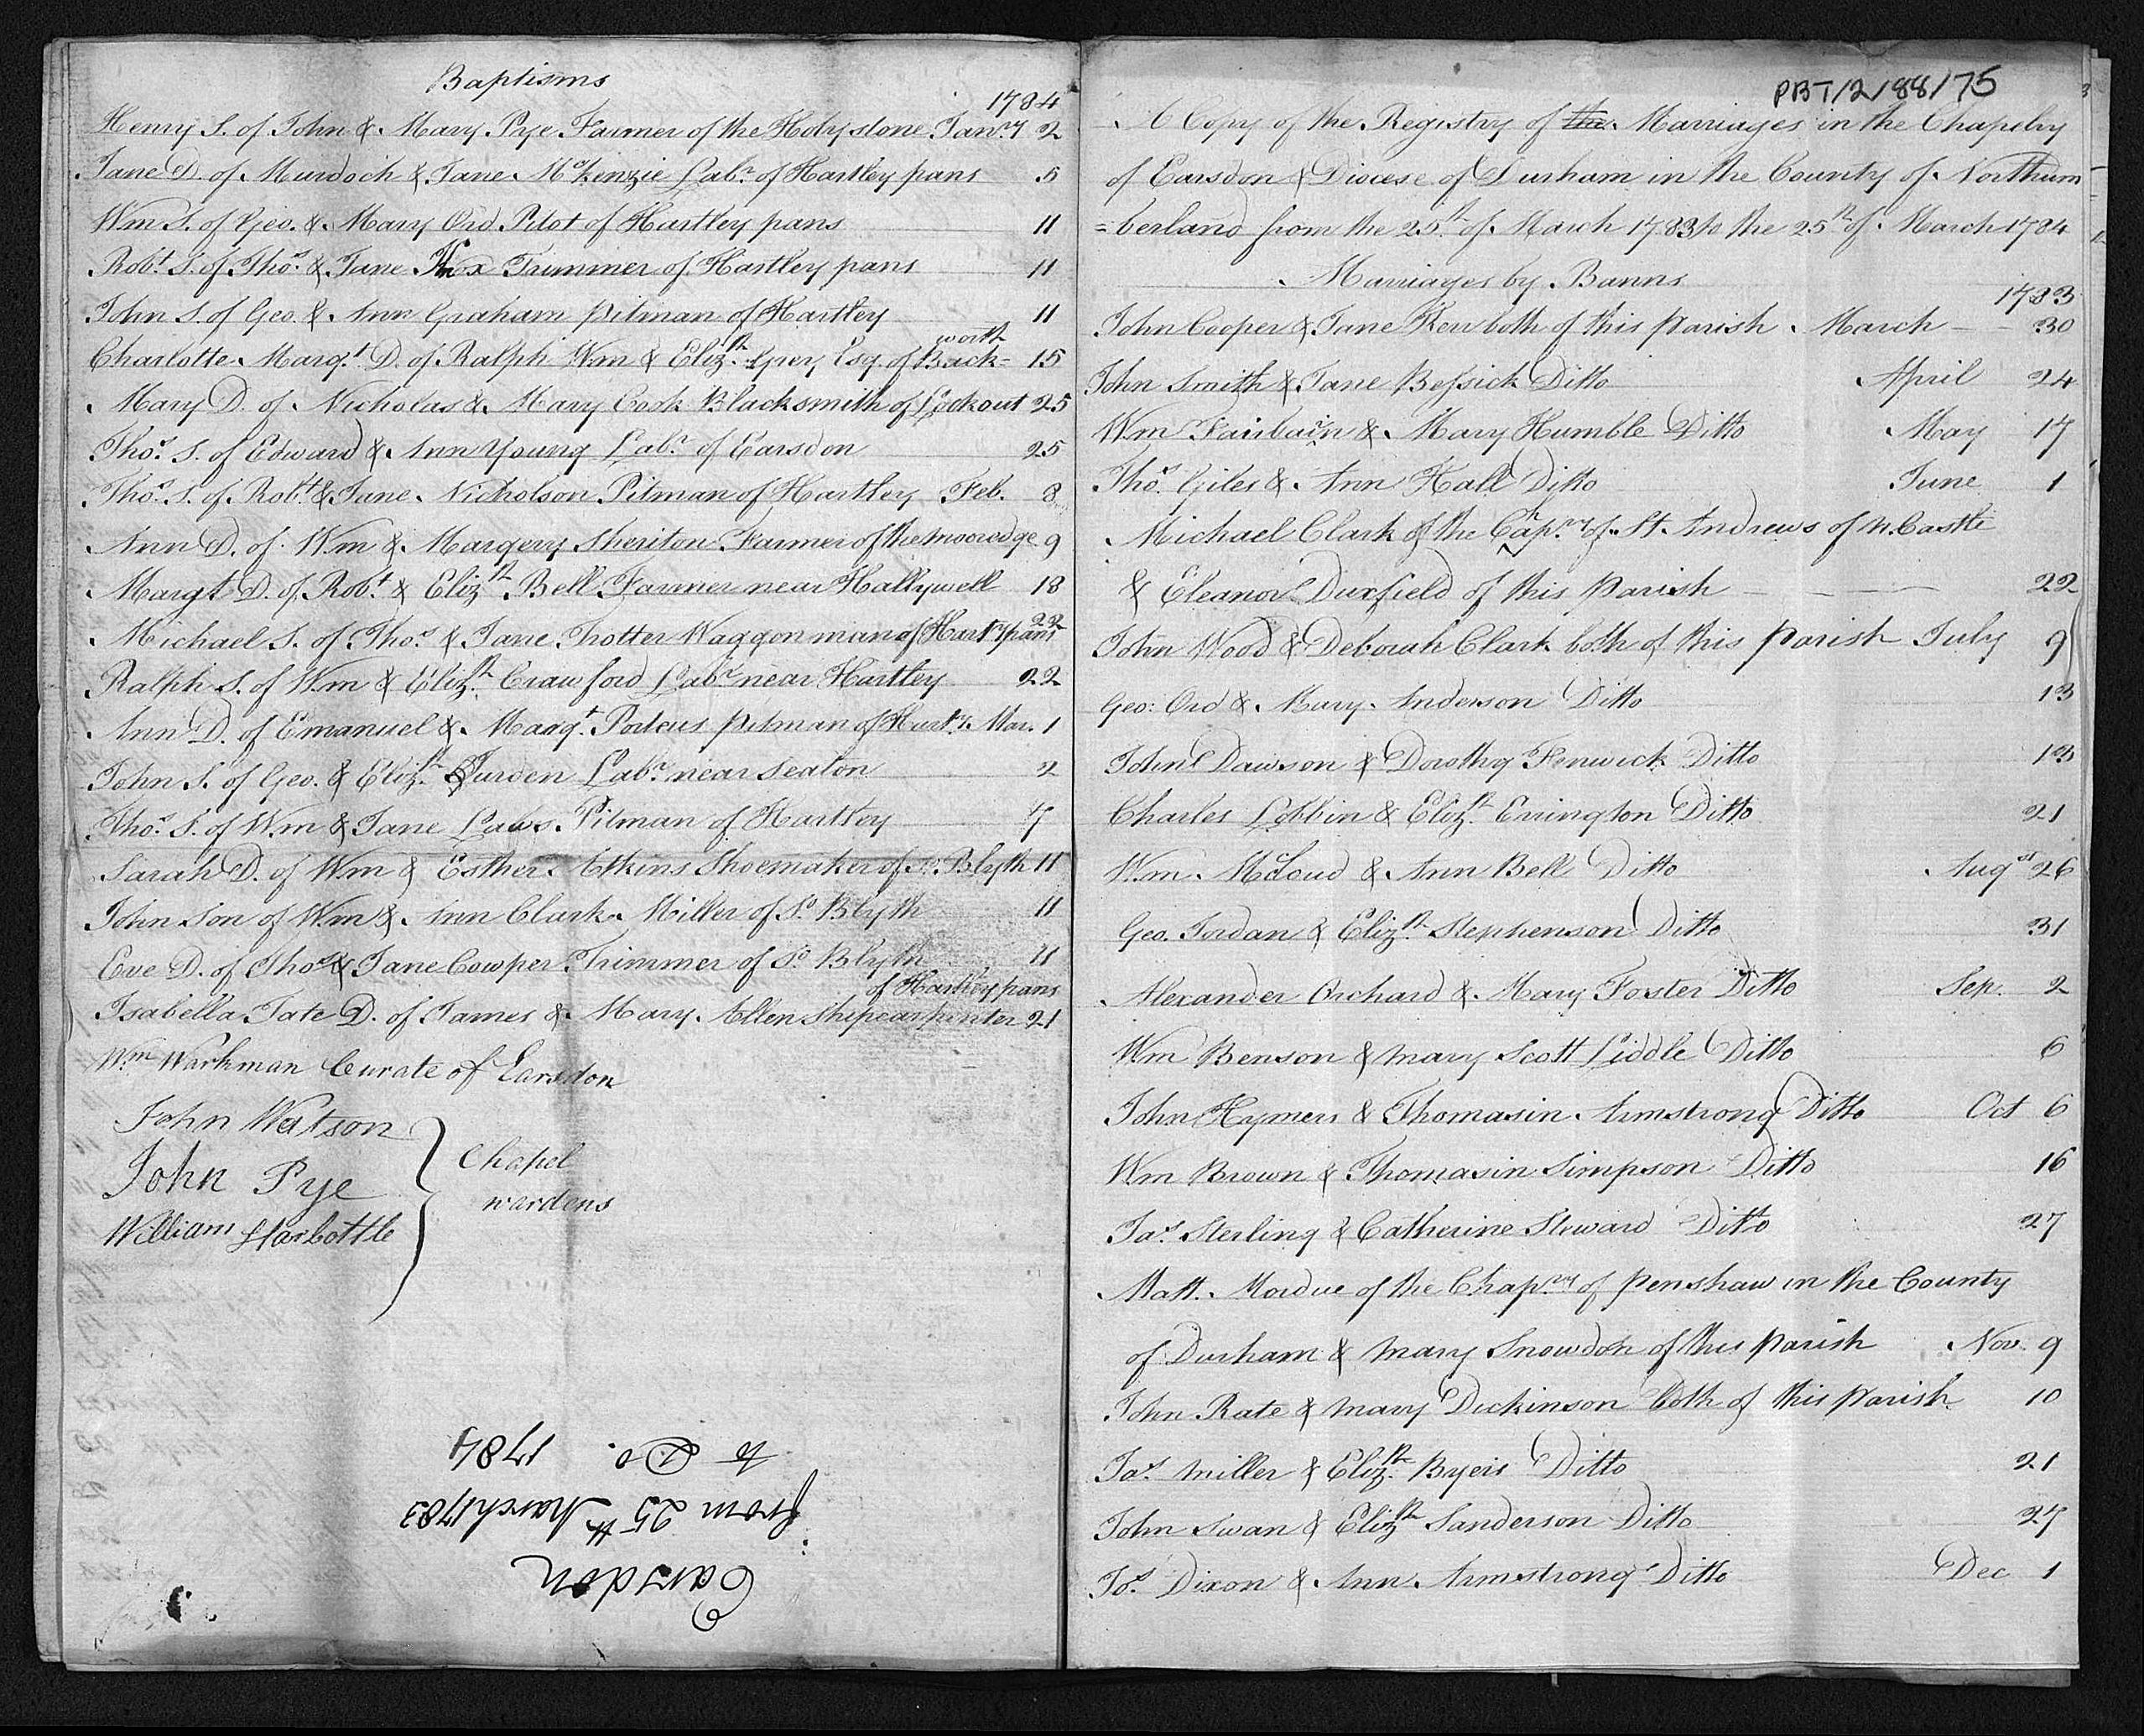 Baptisms
1784
Henry S. of John & Mary Pye Farmer of the Holystone Janry 2
Jane D. of Murdoch & Jane Mckenzie Labr of Hartley pans 5
Wm S. of Geo. & Mary Ord Pilot of Hartley pans 11
Robt S. of Thos & Jane Trimmer of Hartley pans 11
John S. of Geo. & Ann Graham pitman of Hartley 11
worth
Charlotte Margt D. of Ralph Wm & Elizth Grey Esq. of Back= 15
Mary D. of Nicholas & Mary Cook Blacksmith of Lookout 25
Thos S. of Edward & Ann Young Labr of Earsdon 25
Thos S. of Robt & Jane Nicholson Pitman of Hartley Feb. 8
Ann D. of Wm & Margery Sheriton Farmer of the mooredge 9
Margt D. of Robt & Elizth Bell Farmer near Hallywell 18
Michael S. of Thos & Jane Trotter Waggonman of Hartypans 22
Ralph S. of Wm & Elizth Crawford Labr near Hartley 22
Ann D. of Emanuel & Margt Porteus pitman of Harty Mar. 1
John S. of Geo. & Elizth Jurden Labr near Seaton 2
Thos S. of Wm & Jane Laws Pitman of Hartley 7
Sarah D. of Wm & Esther Atkins Shoemaker of So Blyth 11
John Son of Wm & Ann Clark Miller of So Blyth 11
Eve D. of Thos & Jane Cowper Trimmer of So Blyth 11
of Hartley pans
Isabella Tate D. of James & Mary Allen Shipcarpenter 21
Wm Warkman Curate of Earsdon
John Watson
John Pye
William Harbottle
Chapel
wardens
Earsdon
from 25th March 1783
to Do. 1784
PBT/2/88/75
A Copy of the Registry of the Marriages in the Chapelry
of Earsdon & Diocese of Durham in the County of Northum
=berland from the 25th of March 1783 to the 25th of March 1784
Marriages by Banns
1783
John Cooper & Jane Kerr both of this parish March 30
John Smith & Jane Bessick Ditto April 24
Wm Fairbairn & Mary Humble Ditto May 17
Thos Giles & Ann Hall Ditto June 1
Michael Clark of the Chapry of St. Andrews of N.Castle
& Eleanor Duxfield of this parish 22
John Wood & Deborah Clark both of this parish July 9
Geo: Ord & Mary Anderson Ditto 13
John Dawson & Dorothy Fenwick Ditto 13
Charles & Elizth Errington Ditto 21
Wm McCloud & Ann Bell Ditto Augst 26
Geo. Jordan & Elizth Stephenson Ditto 31
Alexander Orchard & Mary Foster Ditto Sep. 2
Wm Benson & Mary Scott Liddle Ditto 6
John Hymers & Thomasin Armstrong Ditto Oct 6
Wm Brown & Thomasin Simpson Ditto 16
Jas Sterling & Catherine Steward Ditto 27
Matt. Mordue of the Chapry of penshaw in the County
of Durham & Mary Snowdon of this parish Nov. 9
John Rate & Mary Dickinson both of this parish 10
Jas Miller & Elizth Byers Ditto 21
John Swan & Elizth Sanderson Ditto 27
Jos Dixon & Ann Armstrong Ditto Dec 1